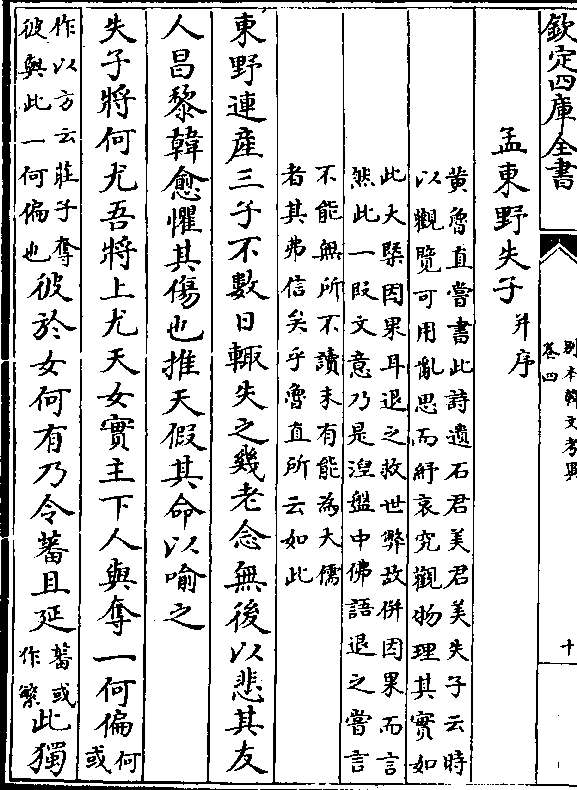 欽定四庫全書
別本韓文考異
卷四
十
孟東野失子并序
黄魯直嘗書此詩遺石君美君美失子云時
以觀覽可用亂思而紓哀究觀物理其實如
此大槩因果耳退之救世弊故併因果而言
然此一段文意乃是涅盤中佛語退之嘗言
不能無所不讀未有能為大儒
者其弗信矣乎魯直所云如此
東野連産三子不數日輙失之幾老念無後以悲其友
人昌黎韓愈懼其傷也推天假其命以喻之
失子將何尤吾將上尤天女實主下人與奪一何偏何或
作以方云莊子奪彼與此一何偏也彼於女何有乃令蕃且延蕃或作繁此獨